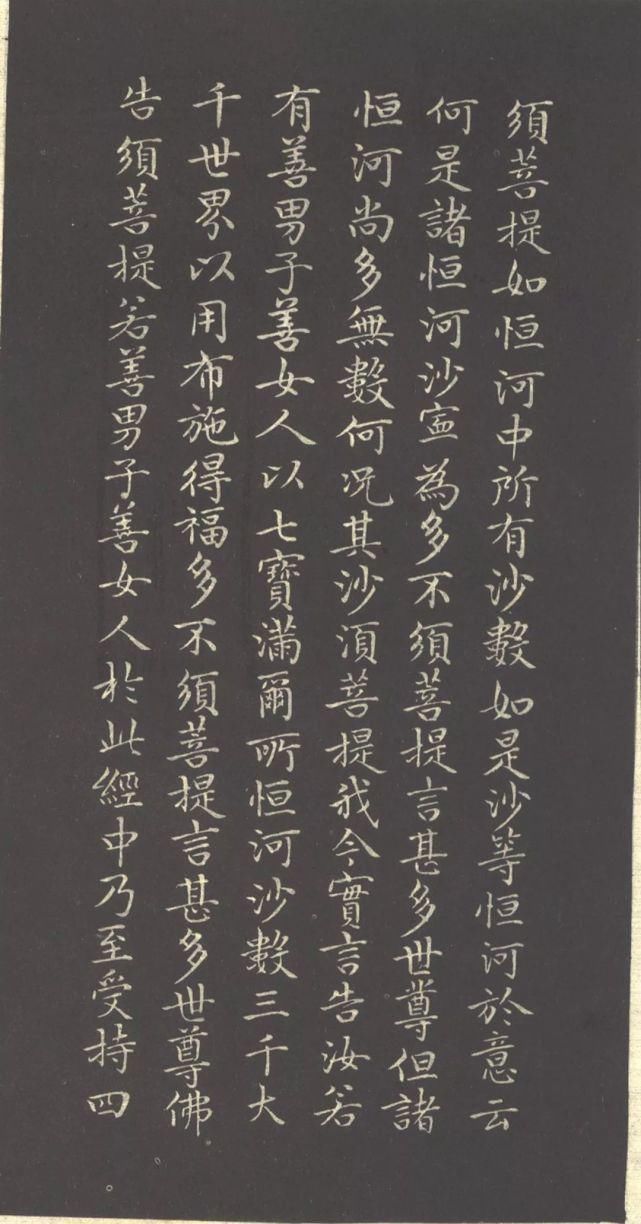 須菩提如恒河中所有沙數如是沙等恒河於意云
何是諸恒河沙寍為多不須菩提言甚多世尊但諸
恒河尚多無數何況其沙湏菩提我今實言告汝若
有善男子善女人以七寶滿爾所恒河沙數三千大
千世界以用布施得福多不須菩提言甚多世尊佛
告須菩提若善男子善女人於此經中乃至受持四